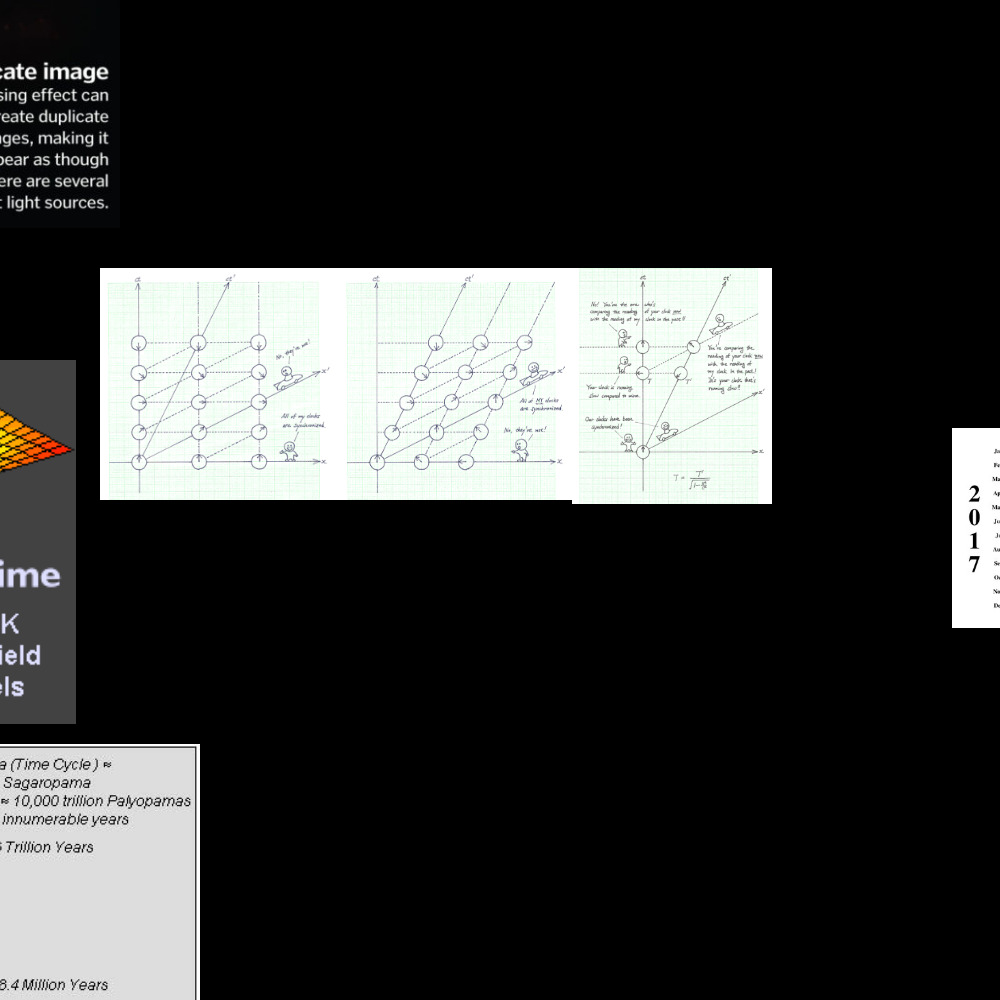 cate image
sing effect can
reate duplicate
ages, making it
pear as though
ere are several
t light sources.
ct
ct'
No, they're not!
x'
All of my clocks
are synchronized.
x
ct
ct'
x'
All of MY clocks
are synchronized.
No, they're not!
x
ct
ct'
No! You're the one who's
comparing the reading of your clock NOW
with the reading of my clock in the past!!
You're comparing the
reading of your clock NOW
with the reading of
my clock in the past!
It's your clock that's
running slow!
T
T'
Your clock is running
slow compared to mine.
x'
Our clocks have been
synchronized!
x
2
0
1
7
ime
K
ield
els
a (Time Cycle ) ≈
Sagaropama
≈ 10,000 trillion Palyopamas
innumerable years
Trillion Years
8.4 Million Years